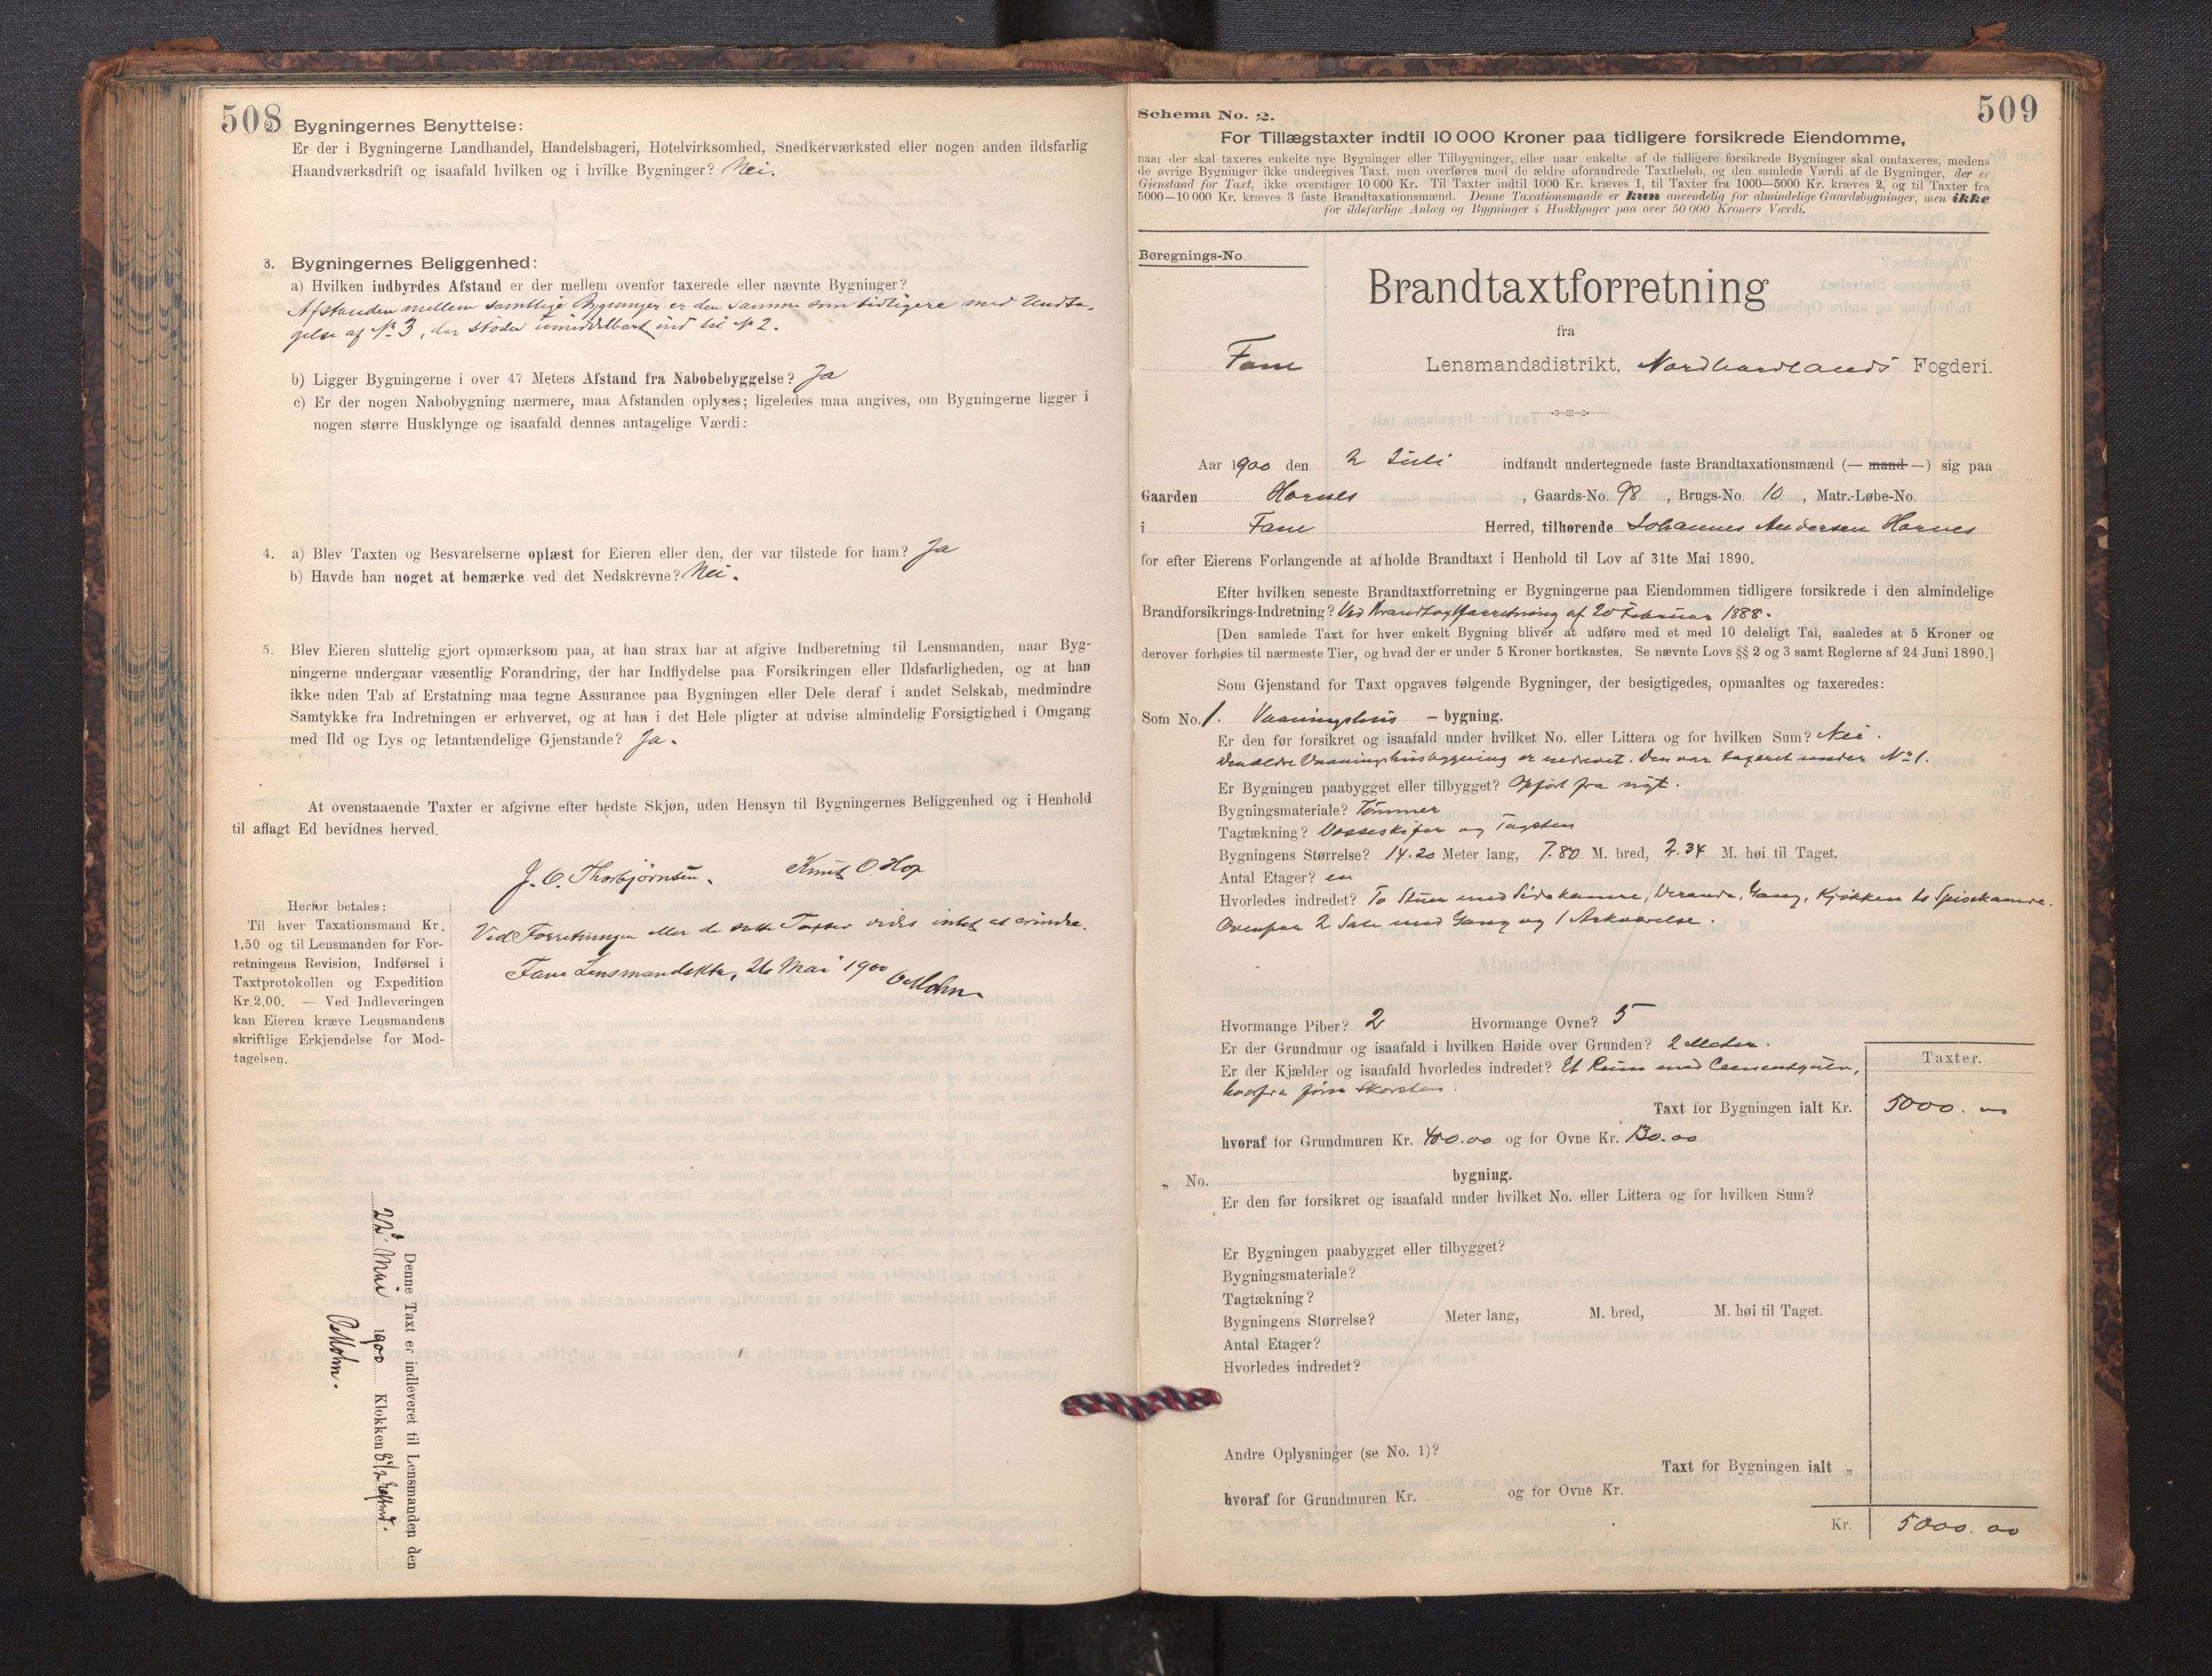 508
2. Bygningernes Benyttelse:
Er der i Bygningerne Landhandel, Handelsbageri, Hotelvirksomhed, Snedkerværksted eller nogen anden ildsfarlig
Haandværksdrift og isaafald hvilken og i hvilke Bygninger? Nei.
3. Bygningernes Beliggenhed:
a) Hvilken indbyrdes Afstand er der mellem ovenfor taxerede eller nævnte Bygninger?
Afstanden mellem samtlige Bygninger er den samme som tidligere med Undta-
gelse af No 3, der støder umiddelbart ind til No 2.
b) Ligger Bygningerne i over 47 Meters Afstand fra Nabobebyggelse? Ja
c) Er der nogen Nabobygning nærmere, maa Afstanden oplyses; ligeledes maa angives, om Bygningerne ligger i
nogen større Husklynge og isaafald dennes antagelige Værdi:
4. a) Blev Taxten og Besvarelserne oplæst for Eieren eller den, der var tilstede for ham? Ja
b) Havde han noget at bemærke ved det Nedskrevne? Nei.
5. Blev Eieren sluttelig gjort opmærksom paa, at han strax har at afgive Indberetning til Lensmanden, naar Byg-
ningerne undergaar væsentlig Forandring, der har Indflydelse paa Forsikringen eller Ildsfarligheden, og at han
ikke uden Tab af Erstatning maa tegne Assurance paa Bygningen eller Dele deraf i andet Selskab, medmindre
Samtykke fra Indretningen er erhvervet, og at han i det Hele pligter at udvise almindelig Forsigtighed i Omgang
med Ild og Lys og letantændelige Gjenstande? Ja.
At ovenstaaende Taxter er afgivne efter bedste Skjøn, uden Hensyn til Bygningernes Beliggenhed og i Henhold
til aflagt Ed bevidnes herved.
J. C. Thorbjørnsen. Knut O. Hop
Herfor betales:
Til hver Taxationsmand Kr.
1.50 og til Lensmanden for For-
retningens Revision, Indførsel i
Taxtprotokollen og Expedition
Kr. 2.00. — Ved Indleveringen
kan Eieren kræve Lensmandens
skriftlige Erkjendelse for Mod-
tagelsen.
Ved Forretningen eller de satte Taxter vides intet at erindre.
Fane Lensmandsktr, 26 Mai 1900 O Mohn
Denne Taxt er indleveret til Lensmanden den
22d Mai 1900 Klokken 8 1/2 Efmd.
O Mohn.
509
Schema No. 2.
For Tillægstaxter indtil 10 000 Kroner paa tidligere forsikrede Eiendomme,
naar der skal taxeres enkelte nye Bygninger eller Tilbygninger, eller naar enkelte af de tidligere forsikrede Bygninger skal omtaxeres, medens
de øvrige Bygninger ikke undergives Taxt, men overføres med de ældre uforandrede Taxtbeløb, og den samlede Værdi af de Bygninger, der er
Gjenstand for Taxt, ikke overstiger 10 000 Kr. Til Taxter indtil 1000 Kr. kræves 1, til Taxter fra 1000—5000 Kr. kræves 2, og til Taxter fra
5000—10 000 Kr. kræves 3 faste Brandtaxationsmænd. Denne Taxationsmaade er kun anvendelig for almindelige Gaardsbygninger, men ikke
for ildsfarlige Anlæg og Bygninger i Husklynger paa over 50 000 Kroners Værdi.
Beregnings-No.
Brandtaxtforretning
fra
Fane Lensmandsdistrikt, Nordhordlands Fogderi.
Aar 1900 den 2 Juli indfandt undertegnede faste Brandtaxationsmænd (— mand —) sig paa
Gaarden Hornes, Gaards-No. 98, Brugs-No. 10, Matr.-Løbe-No.
i Fane Herred, tilhørende Johannes Andersen Hornes
for efter Eierens Forlangende at afholde Brandtaxt i Henhold til Lov af 31te Mai 1890.
Efter hvilken seneste Brandtaxtforretning er Bygningerne paa Eiendommen tidligere forsikrede i den almindelige
Brandforsikrings-Indretning? Ved Brandtaxtforretning af 20 Februar 1888.
[Den samlede Taxt for hver enkelt Bygning bliver at udføre med et med 10 deleligt Tal, saaledes at 5 Kroner og
derover forhøies til nærmeste Tier, og hvad der er under 5 Kroner bortkastes. Se nævnte Lovs §§ 2 og 3 samt Reglerne af 24 Juni 1890.]
Som Gjenstand for Taxt opgaves følgende Bygninger, der besigtigedes, opmaaltes og taxeredes:
Som No. 1. Vaaningshus — bygning.
Er den før forsikret og isaafald under hvilket No. eller Littera og for hvilken Sum? Nei.
Den ældre Vaaningshusbygning er nedrevet. Den var taxeret under No 1.
Er Bygningen paabygget eller tilbygget? Opført fra nyt.
Bygningsmateriale? Tømmer
Tagtækning? Vosseskifer og Tagsten
Bygningens Størrelse? 14.20 Meter lang, 7.80 M. bred, 2.34 M. høi til Taget.
Antal Etager? en
Hvorledes indredet? To Stuer med Sidekamre, Veranda, Gang, Kjøkken to Spisekamre.
Ovenpaa 2 Sale med Gang og 1 Arkværelse.
Hvormange Piber? 2 Hvormange Ovne? 5
Er der Grundmur og isaafald i hvilken Høide over Grunden? 2 Meter.
Er der Kjælder og isaafald hvorledes indredet? Et Rum med Cementgulv,
hvorfra Skorsten.
Taxter.
Taxt for Bygningen ialt Kr. 5000.00
hvoraf for Grundmuren Kr. 400.00 og for Ovne Kr. 130.00
„ No. bygning.
Er den før forsikret og isaafald under hvilket No. eller Littera og for hvilken Sum?
Er Bygningen paabygget eller tilbygget?
Bygningsmateriale?
Tagtækning?
Bygningens Størrelse? Meter lang, M. bred, M. høi til Taget.
Antal Etager?
Hvorledes indredet?
Andre Oplysninger (se No. 1)?
Taxt for Bygningen ialt „
hvoraf for Grundmuren Kr. og for Ovne Kr.
Kr. 5000.00